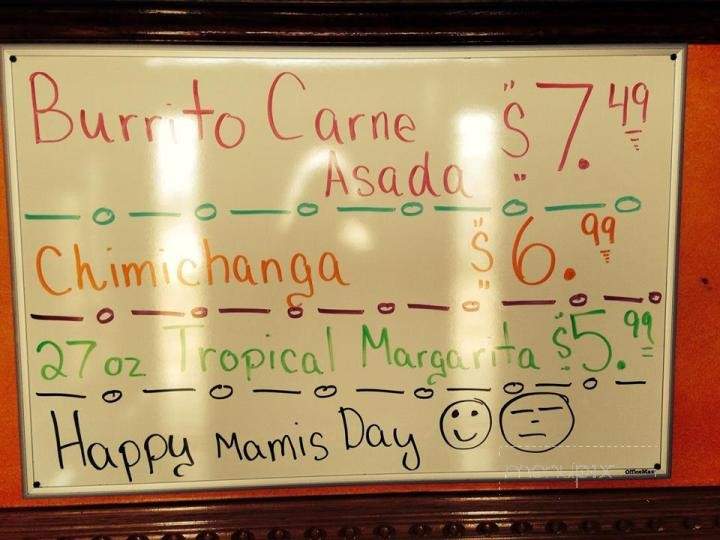 Burrito Carne Asada $7.49
Chimichanga $6.99
27oz Tropical Margarita $5.99
Happy Mamis Day
OfficeMax
menupix